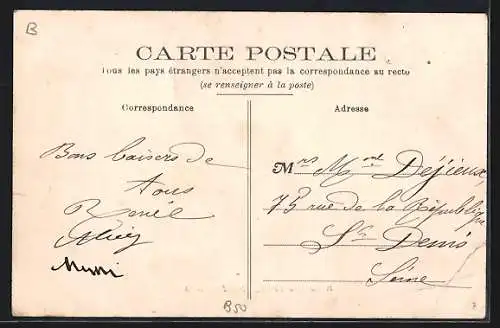 B
CARTE POSTALE
Tous les pays étrangers n'acceptent pas la correspondance au recto
(se renseigner à la poste)
Correspondance
Bons baisers de
tous
Adresse
Mrs Mme Déjieux
75 rue de la République
St Denis
Seine
B50